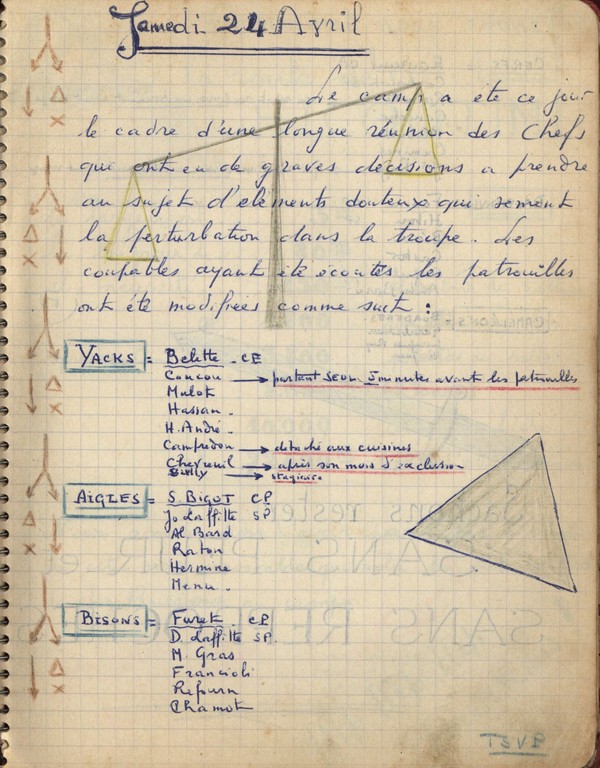 Samedi 24 Avril
Le camp a été ce jour
le cadre d'une longue réunion des Chefs
qui ont eu de graves décisions a prendre
au sujet d'eléments douteux qui sement
la perturbation dans la troupe. Les
coupables ayant été écoutés les patrouilles
ont été modifiées comme suit :
YACKS = Belette . CE
Coucou → partant SEUL 5 minutes avant les patrouilles
Mulot
Hassan.
H. André.
Campredon → détaché aux cuisines
Chevreuil → après son mois d'exclusion
→ stagiaire
AIGLES = S. BIGOT CP
Jo Laffitte SP
Al Bard
Raton
Hermine
Menu.
BISONS = Furet. CP
D. Laffitte SP.
M. Gras
Francioli
Chamot
TSVP